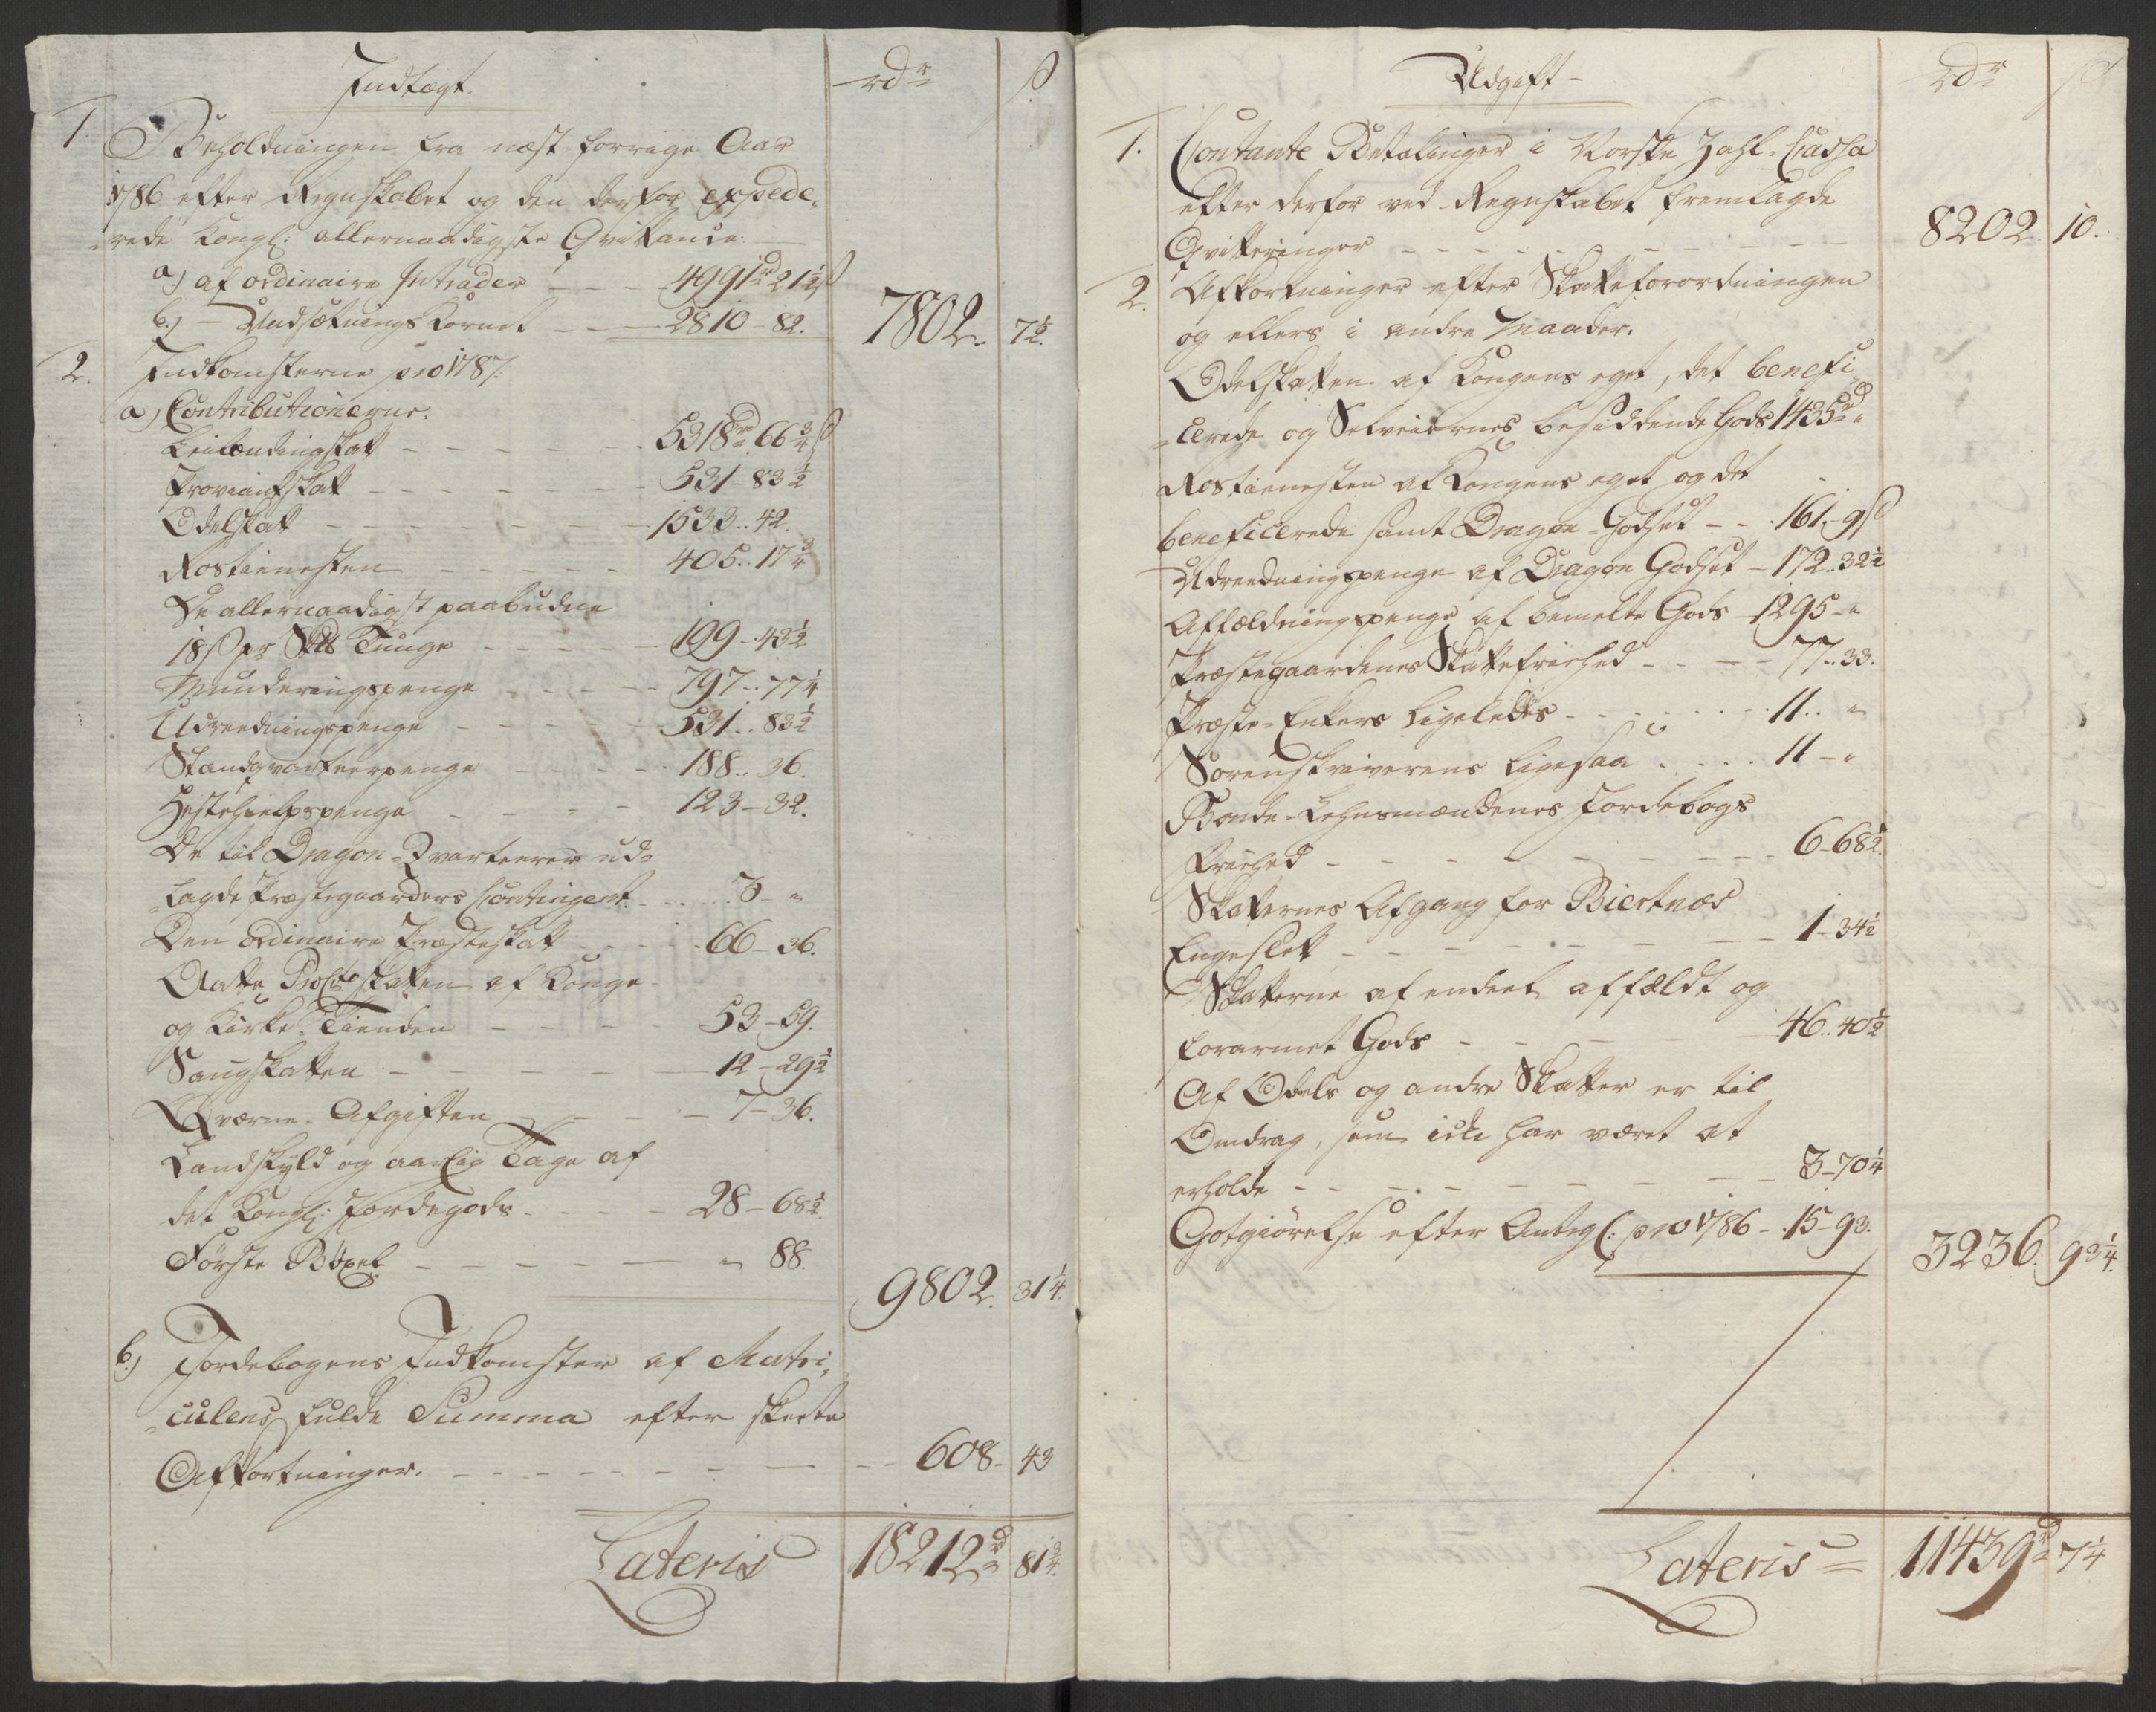 Indtægt. rdr ß
1. Beholdningen fra næst forrige Aar
1786 efter Regnskabet og den derfor expede-
rede Kongl: allernaadigste Qvitance
a) af ordinaire Intrader - - - 4991rd 21½ß
b.) — Undsætnings Kornet - - - 2810 - 82. 7802. 7½.
2. Indkomsterne pro 1787.
a) Contributionerne.
Leilændingskatt - - - - - 5318rd 66¾ß
Proviantskatt - - - - - 531 - 83½
Odelskatt - - - - - 1533.. 42.
Rostienesten - - - - - 405.. 17¾
De allernaadigst paabudne
18 ß pr Skll Tunge - - - - 199 - 43½
Munderingspenge - - - - 797.. 77¼
Udreedningspenge - - - - 531.. 83½
Standqvarteerpenge - - - - 188.. 36.
Hestehielpspenge - - - - 123 - 32.
De til Dragon-Qvarteerer ud-
lagde Præstegaarders Contingent. - - - 3 - "
Den ordinaire Præsteskatt - - - 66 - 36.
Aatte ProCto skatten af Konge
og Kirke-Tienden - - - - 53 - 59.
Saugskatten - - - - - 12 - 29½
Qværne-Afgiften - - - - 7 - 36.
Landskyld og aarlig Tage af
det Kongl: Jordegods - - - - 28 - 68½.
Første Bøxel - - - - - " 88. 9802. 31¼.
b.) Jordebogens Indkomster af Matri-
culens fulde Summa efter skeete
Afkortninger. - - - - - - - 608. 43
Lateris 18212rd 81¾.
Udgift - rdr ß
1. Contante Betalinger i Norske Zahl-Cassa
efter derfor ved Regnskabet fremlagde
Qvitteringer - - - - - - - 8202. 10.
2. Afkortninger efter Skatteforordningen
og ellers i andre Maader.
Odelskatten af Kongens eget, det benefi-
cerede og Selveiernes besiddende Gods 1435rd "
Rostienesten af Kongens eget og det
beneficerede samt Dragon-Godset - - 161 - 9ß
Udreedningspenge af Dragon Godset - 172.. 32½
Affældningspenge af bemelte Gods - 1295 - "
Præstegaardenes Skattefriehed - - - - 77.. 33.
Præste-Enkers ligeledes - - - - - 11.. "
Sorenskriverens ligesaa - - - - 11 - "
Bonde-Lehnsmændenes Jordebogs
friehed - - - - - - - 6 - 68½.
Skatternes Afgang for Biertnæs
Engeslet - - - - - - - 1 - 34½
Skatterne af endeel affældt og
forarmet Gods - - - - - 46.. 40½
Af Odels og andre Skatter er til
Omdrag, som icke har været at
erholde - - - - - - - 3 - 70¼
Gotgiørelse efter Antegl: pro 1786 - 15 - 93. 3236. 93¼.
Lateris = 11439rd 7¼